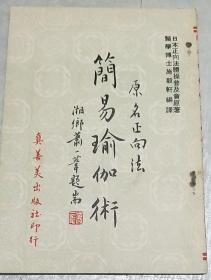 日本正向法體操普及會原著
醫學博士馬毅軒編譯
原名正向法
簡易瑜伽術
湘鄉蕭一葦題耑
真善美出版社印行